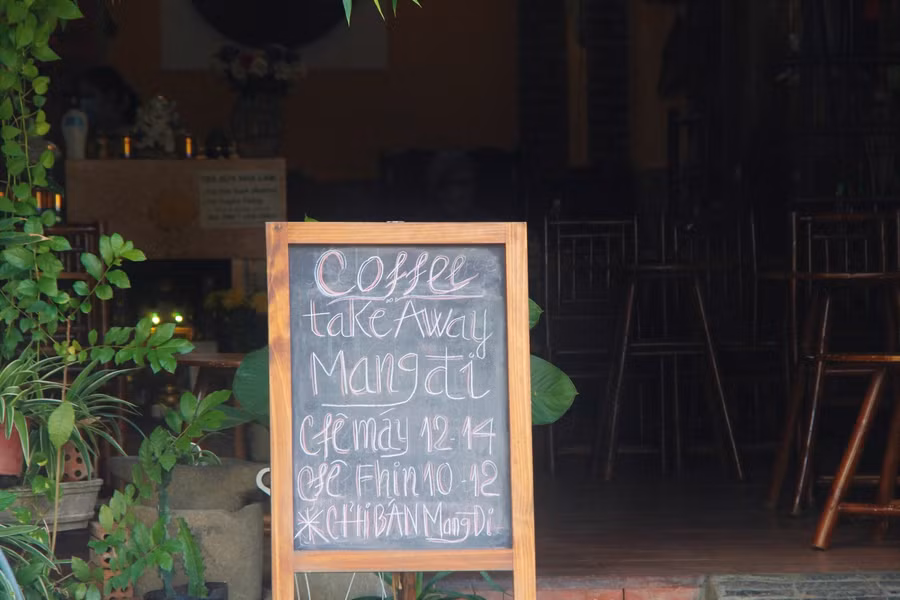 Coffee
take Away
Mang đi
Cfê máy 12-14
Cfê Fhin 10-12
*CHỉ BÁN Mang Đi